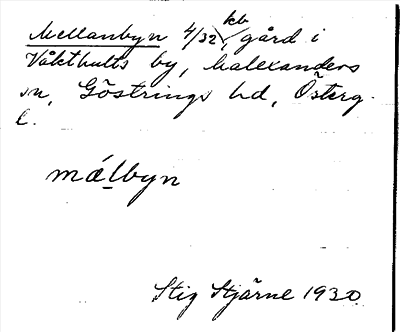 Mellanbyn 4/32 kb, gård i
Våkthults by, Malexanders
sn, Göstrings hd, Österg.
l.
málbyn
Stig Stjärne 1930.